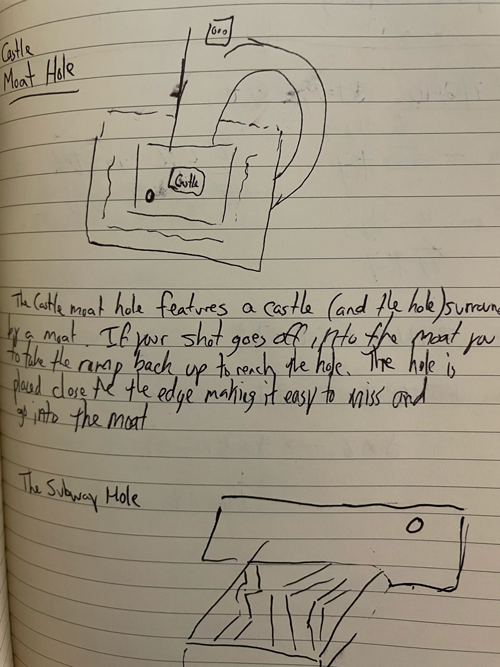 Castle
Moat Hole
Castle
The Castle moat hole features a castle (and the hole) surroun
by a moat. If your shot goes off into the moat you
to take the ramp back up to reach the hole. The hole is
placed close to the edge making it easy to miss and
go into the moat
The Subway Hole